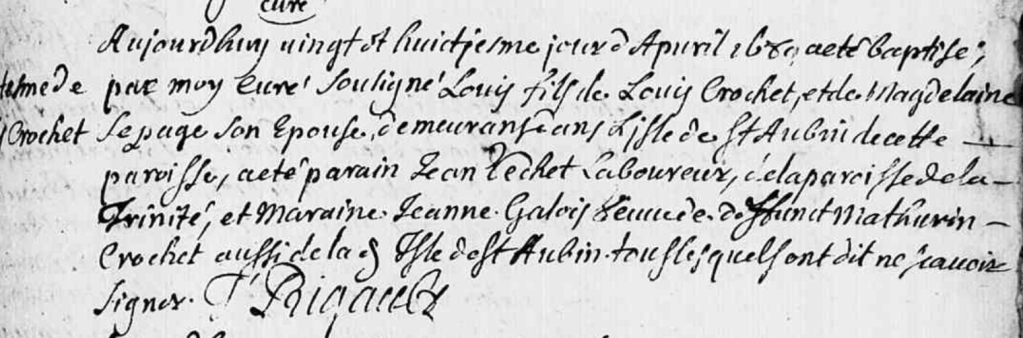 curé
Aujourdhuy uingt et huictiesme jour d Apuril 1689 a eté baptisé,
par moy Curé souligné Louis fils de Louis Crochet, et de Magdelaine
Crochet Lepage son Epouse, demeurans dans L'isle de st Aubin de cette
paroisse, a eté parain Jean Laboureur, de la paroisse de la
Trinité, et Maraine Jeanne Galois veuue de deffunct Mathurin
Crochet aussi de la d Isle de st Aubin tous lesquels ont dit ne scauoir
signer. Rigault